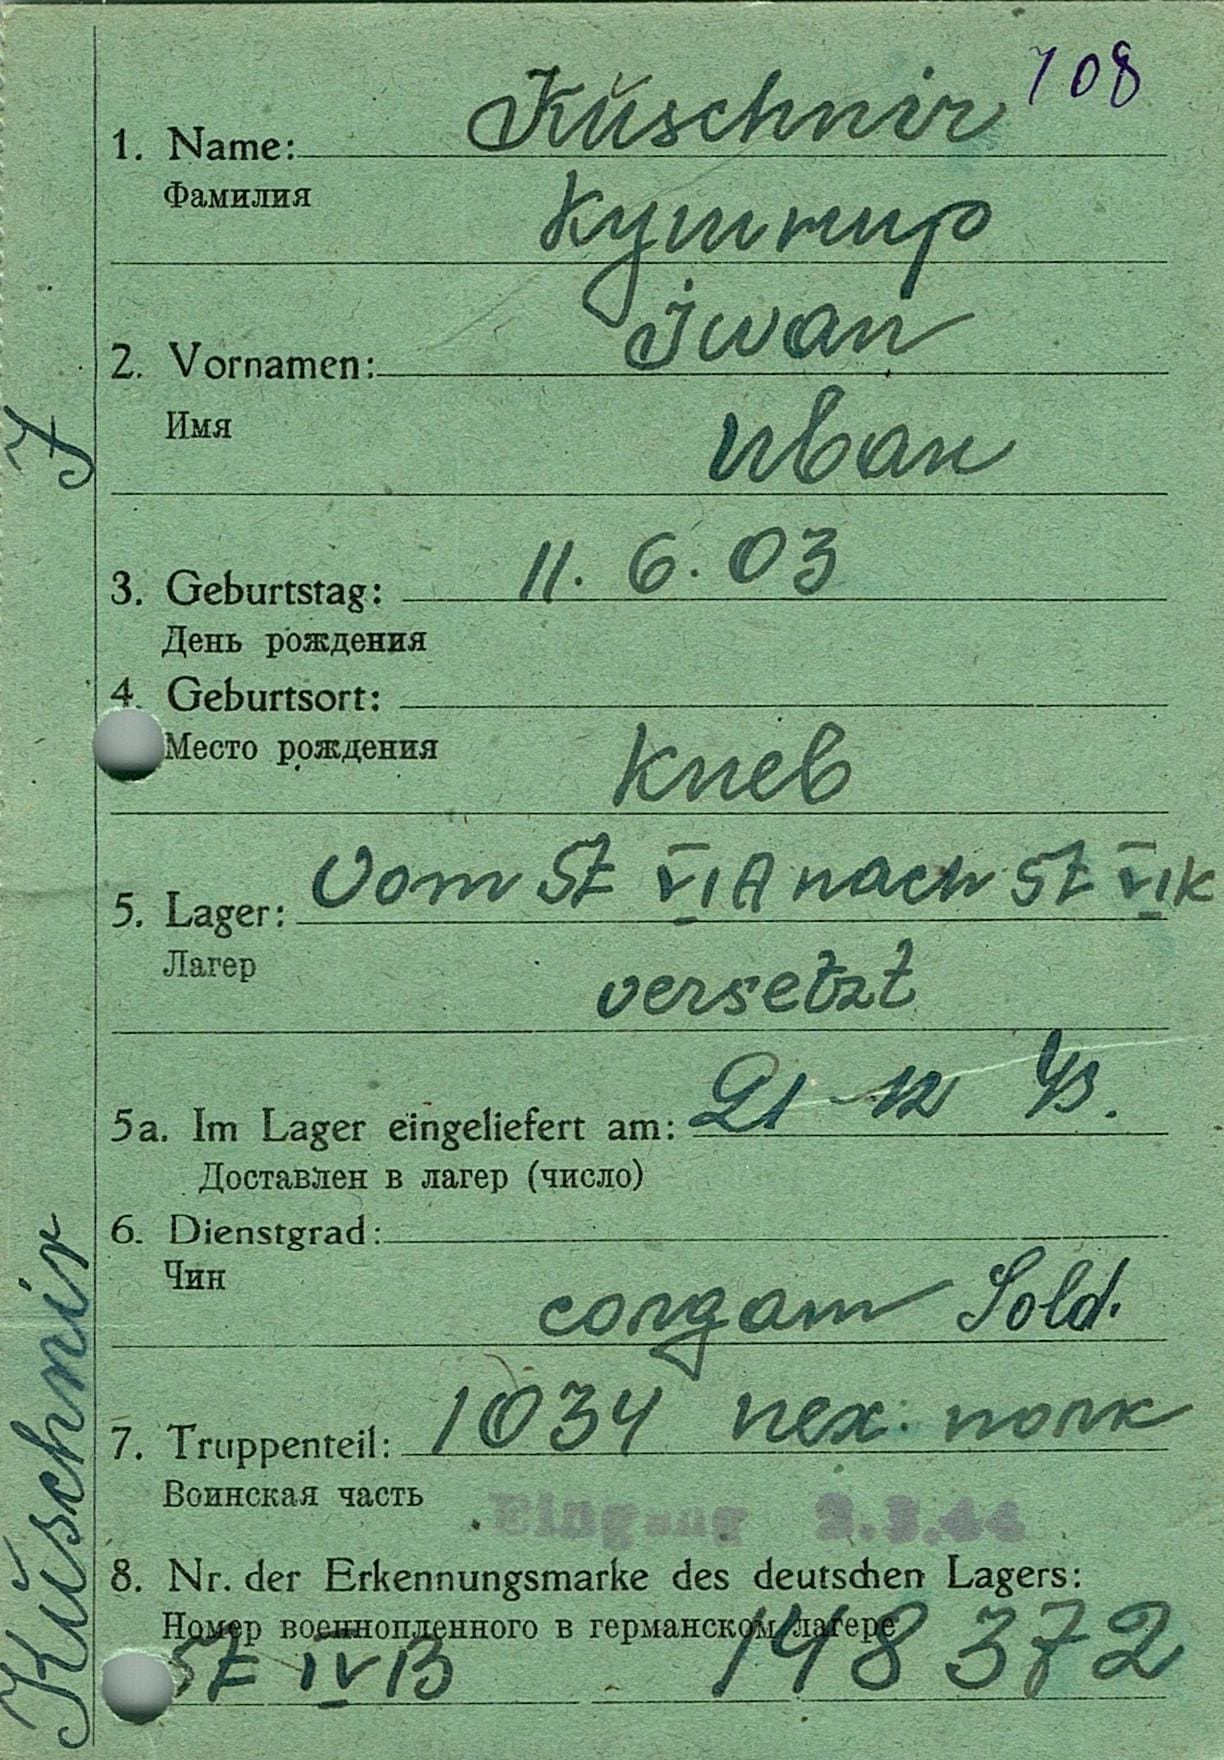 108
1. Name: Kuschnir
Фамилия
Кушнир
2. Vornamen: Iwan
Имя
Иван
3. Geburtstag: 11. 6. 03
День рождения
4. Geburtsort:
Место рождения
Киев
5. Lager: Vom St VI A nach St VI K
Лагер
versetzt
5a. Im Lager eingeliefert am: 21 - 12 43.
Доставлен в лагер (число)
6. Dienstgrad:
Чин
солдат Sold.
7. Truppenteil: 1034 пех. полк
Воинская часть
Eingang 2.3.44
8. Nr. der Erkennungsmarke des deutschen Lagers:
Номер военнопленного в германском лагере
St IV B 148372
Kuschnir J